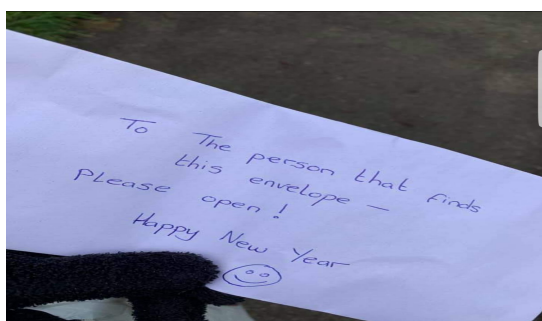 To The person that finds
this envelope –
Please open!
Happy New Year